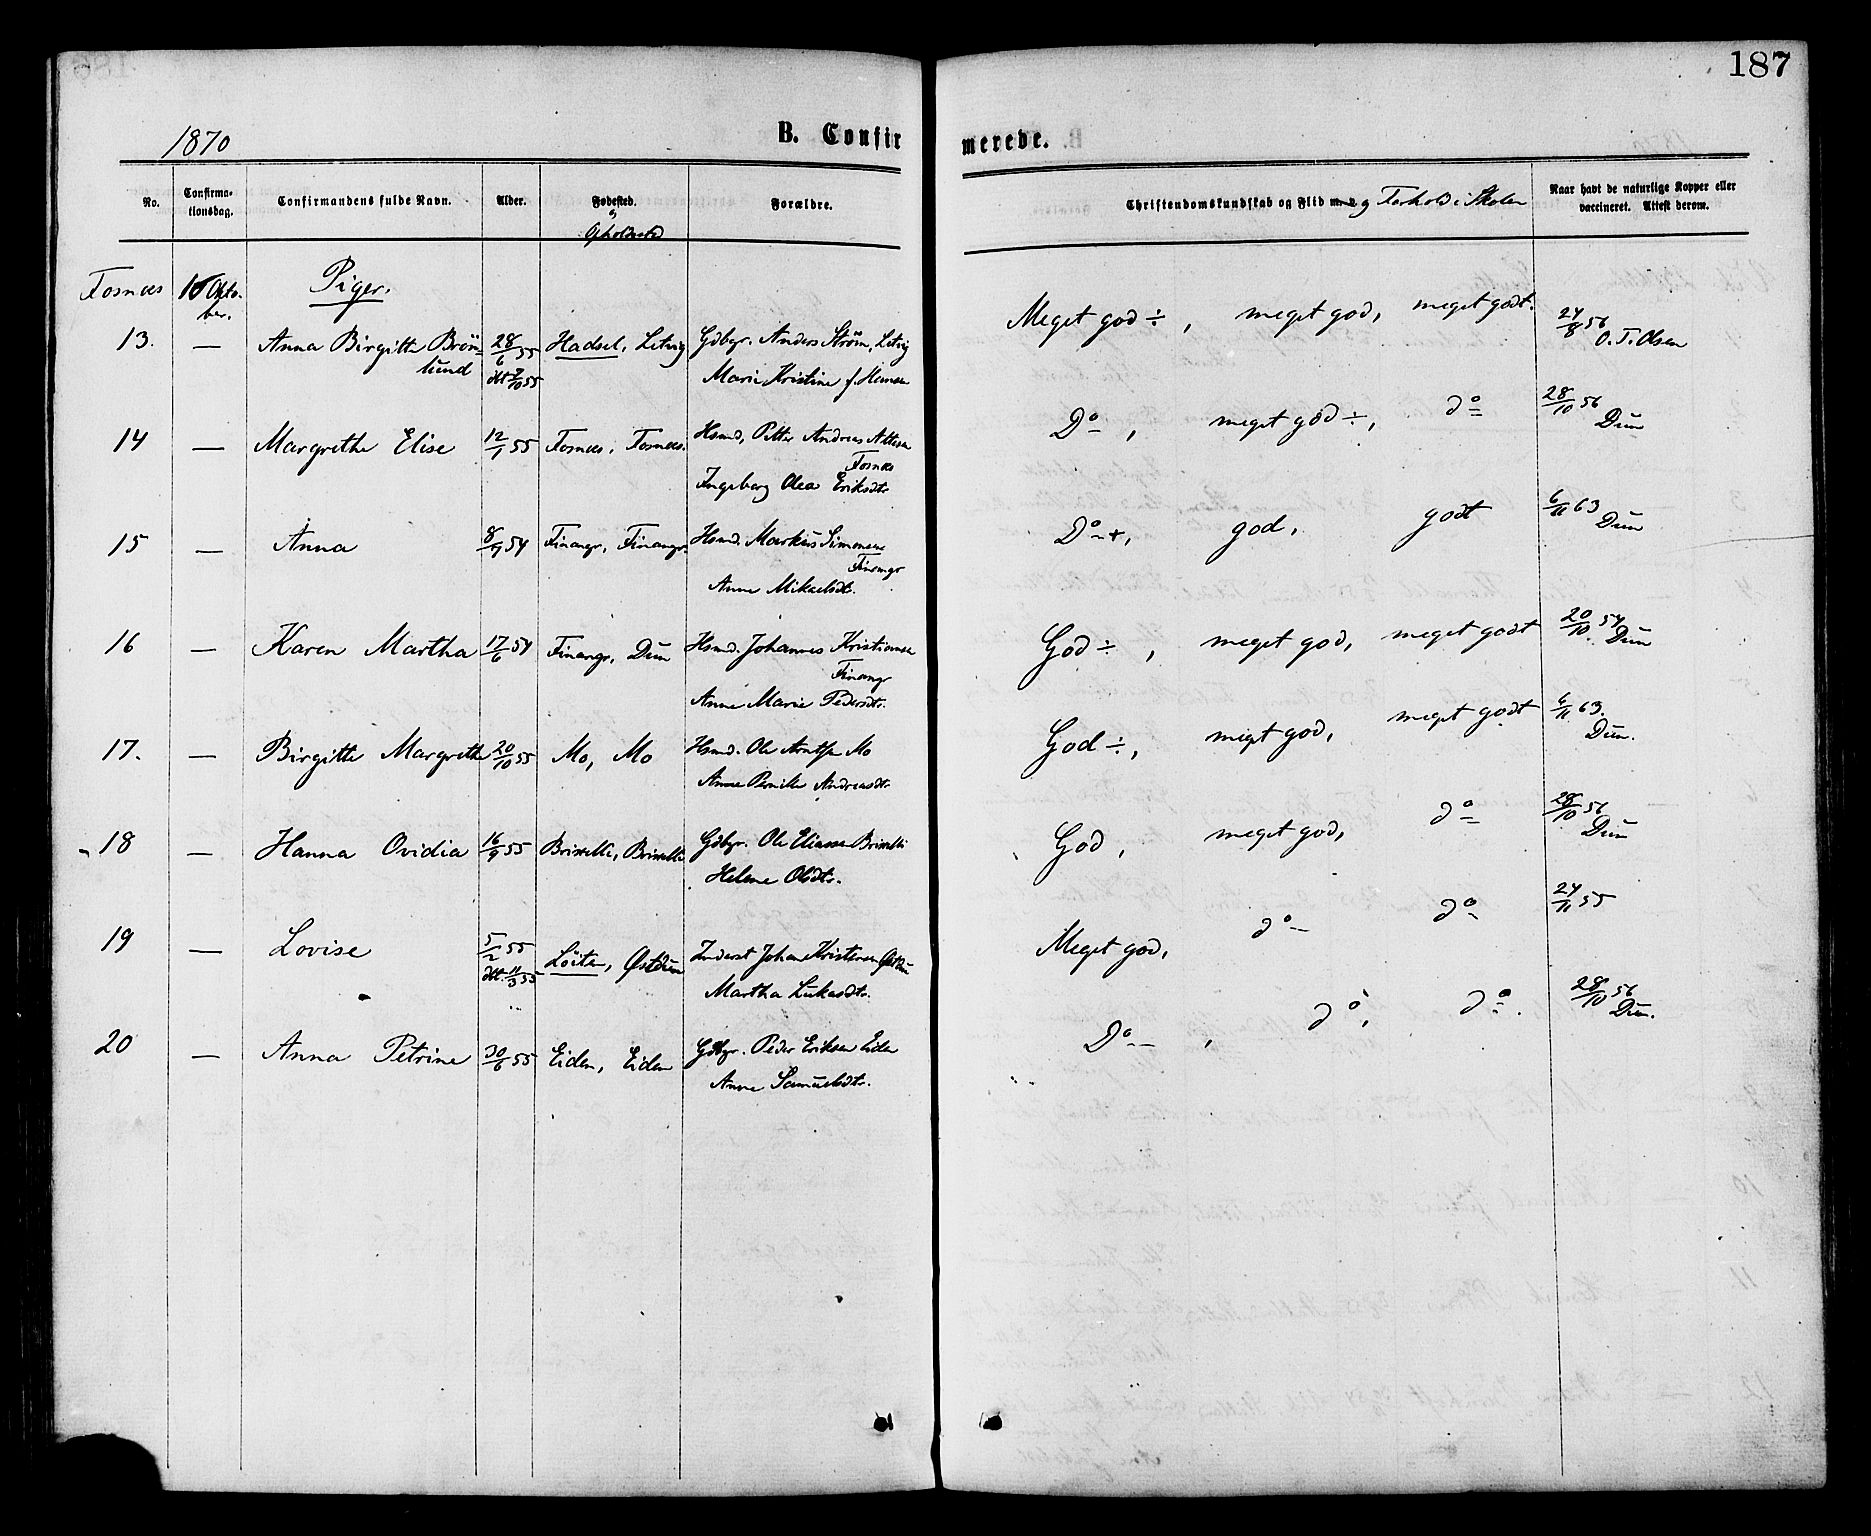 187
1870
B. Confir merede.
No.
Confirma-
tionsdag.
Confirmandens fulde Navn.
Alder.
Fødested.
og
Opholdssted
Forældre.
Christendomskundskab og Flid m. v. og Forhold i Skolen
Naar havt de naturlige Kopper eller
vaccineret. Attest derom.
Fosnæs 16 Okto-
ber.
Piger.
13. — Anna Birgitte Brön-
lund 28/6 55 Hadsel, Letvig Gdbgr. Anders Ström, Letvig
døbt 7/10 55 Marie Kristine f. Hansen
Meget god ÷, meget god, meget godt. 24/8 56
O. T. Olsen
14 — Margrethe Elise 12/1 55 Fosnæs, Fosnæs. Hsmd, Petter Andreas
Fosnæs
Ingeborg Olea Eriksdtr
Do, meget god ÷, do 28/10 56
Dun
15 — Anna 8/9 54 Finangr, Finangr. Hsmd. Markus Simonsen
Finangr
Anne Mikaelsdtr.
Do +, god, godt 6/11 63
Dun
16 — Karen Martha 17/6 54 Finangr, Dun Hsmd. Johannes Kristiansen
Finangr
Anne Marie Pedersdtr.
God ÷, meget god, meget godt 20/10 54
Dun
17. — Birgitte Margrethe 20/10 55 Mo, Mo Hsmd. Ole Arntsen Mo
Anne Pernille Andreasdtr
God ÷, meget god, meget godt 6/11 63.
Dun.
18 — Hanna Ovidia 16/9 55 Brissetli, Brissetli Gdbgr. Ole Eliassen
Helene Olsdtr.
God, meget god, do 28/10 56
Dun
19 — Lovise 5/2 55 Löiten, Østdun Inderst Johan Kristensen Østdun
døbt. 11/3 55 Martha Lukasdtr.
Meget god, do do 24/11 55
20 — Anna Petrine 30/6 55 Eiden, Eiden Gdbgr. Peder Eriksen Eiden
Anne Samuelsdtr.
Do, do, do. 28/10 56
Dun.